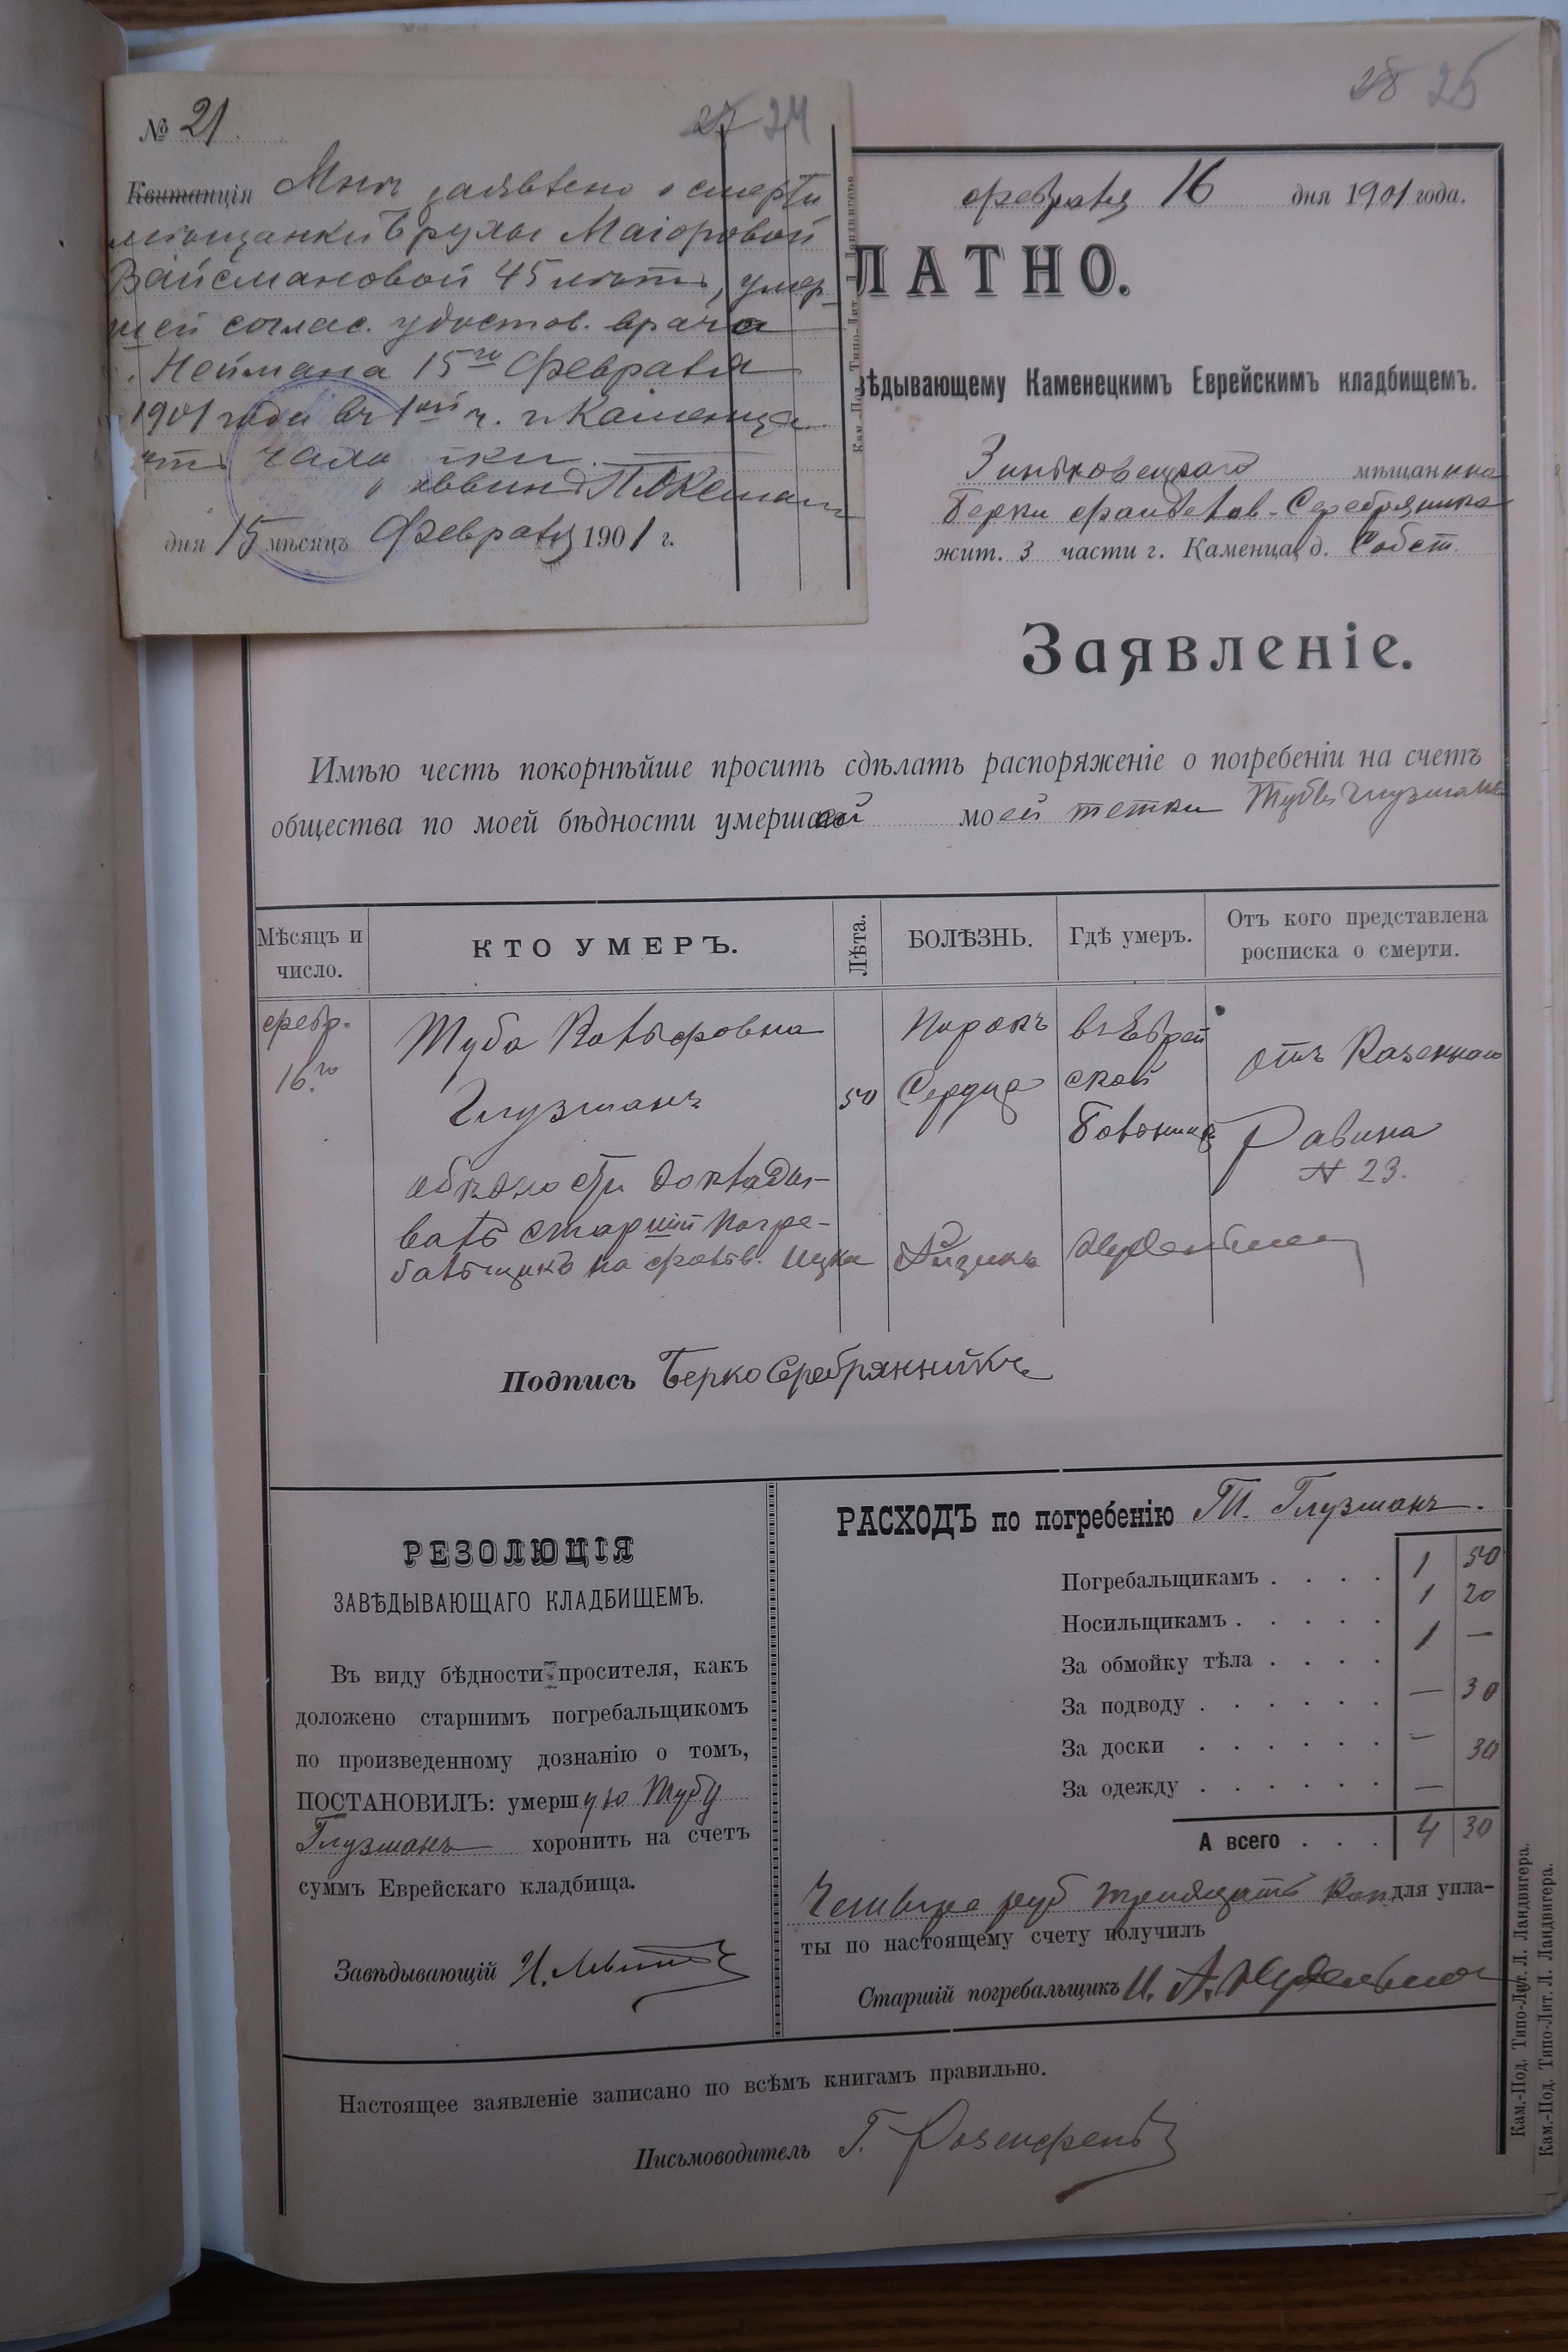 № 21.
27 24
Квитанція Мнѣ заявлено о смерти
мѣщанки Брухи Маіоровой
Вайсмановой 45 лѣтъ, умер-
шей соглас. удостов. врача
Неймана 15го Февраля
1901 года въ 1ой ч. г. Каменца
дня 15 мѣсяцъ Февраля 1901 г.
28 25
февраля 16 дня 1901 года.
ЛАТНО.
вѣдывающему Каменецкимъ Еврейскимъ кладбищемъ.
Зиньковецкаго мѣщанина
Берки Серебряника
жит. 3 части г. Каменца, д. Собст.
Заявленіе.
Имѣю честь покорнѣйше просить сдѣлать распоряженіе о погребеніи на счетъ
общества по моей бѣдности умершей моей тетки Тубы Глузманъ
Мѣсяцъ и число.
КТО УМЕРЪ.
Лѣта.
БОЛѢЗНЬ.
Гдѣ умеръ.
Отъ кого представлена росписка о смерти.
февр. 16.го
Туба
Глузманъ
50
Порокъ Сердца
въ Еврей
ской
Больницѣ
отъ Казеннаго
Равина
№ 23.
обѣдности доклады-
валъ старшій погре-
бальщикъ
Подпись Берко Серебрянникъ
РЕЗОЛЮЦІЯ
ЗАВѢДЫВАЮЩАГО КЛАДБИЩЕМЪ.
Въ виду бѣдности просителя, какъ
доложено старшимъ погребальщикомъ
по произведенному дознанію о томъ,
ПОСТАНОВИЛЪ: умершую Тубу
Глузманъ хоронить на счетъ
суммъ Еврейскаго кладбища.
Завѣдывающій
РАСХОДЪ по погребенію Т. Глузманъ.
Погребальщикамъ . . . . 1 50
Носильщикамъ . . . . . 1 20
За обмойку тѣла . . . . 1 —
За подводу . . . . . . — 30
За доски . . . . . . — 30
За одежду . . . . . . —
А всего . . . 4 30
Четыре руб тридцать коп для упла-
ты по настоящему счету получилъ
Старшій погребальщикъ И. А.
Настоящее заявленіе записано по всѣмъ книгамъ правильно.
Письмоводитель Г. Розенфельдъ
Кам.-Под. Типо-Лит. Л. Ландвигера.
Кам.-Под. Типо-Лит. Л. Ландвигера.